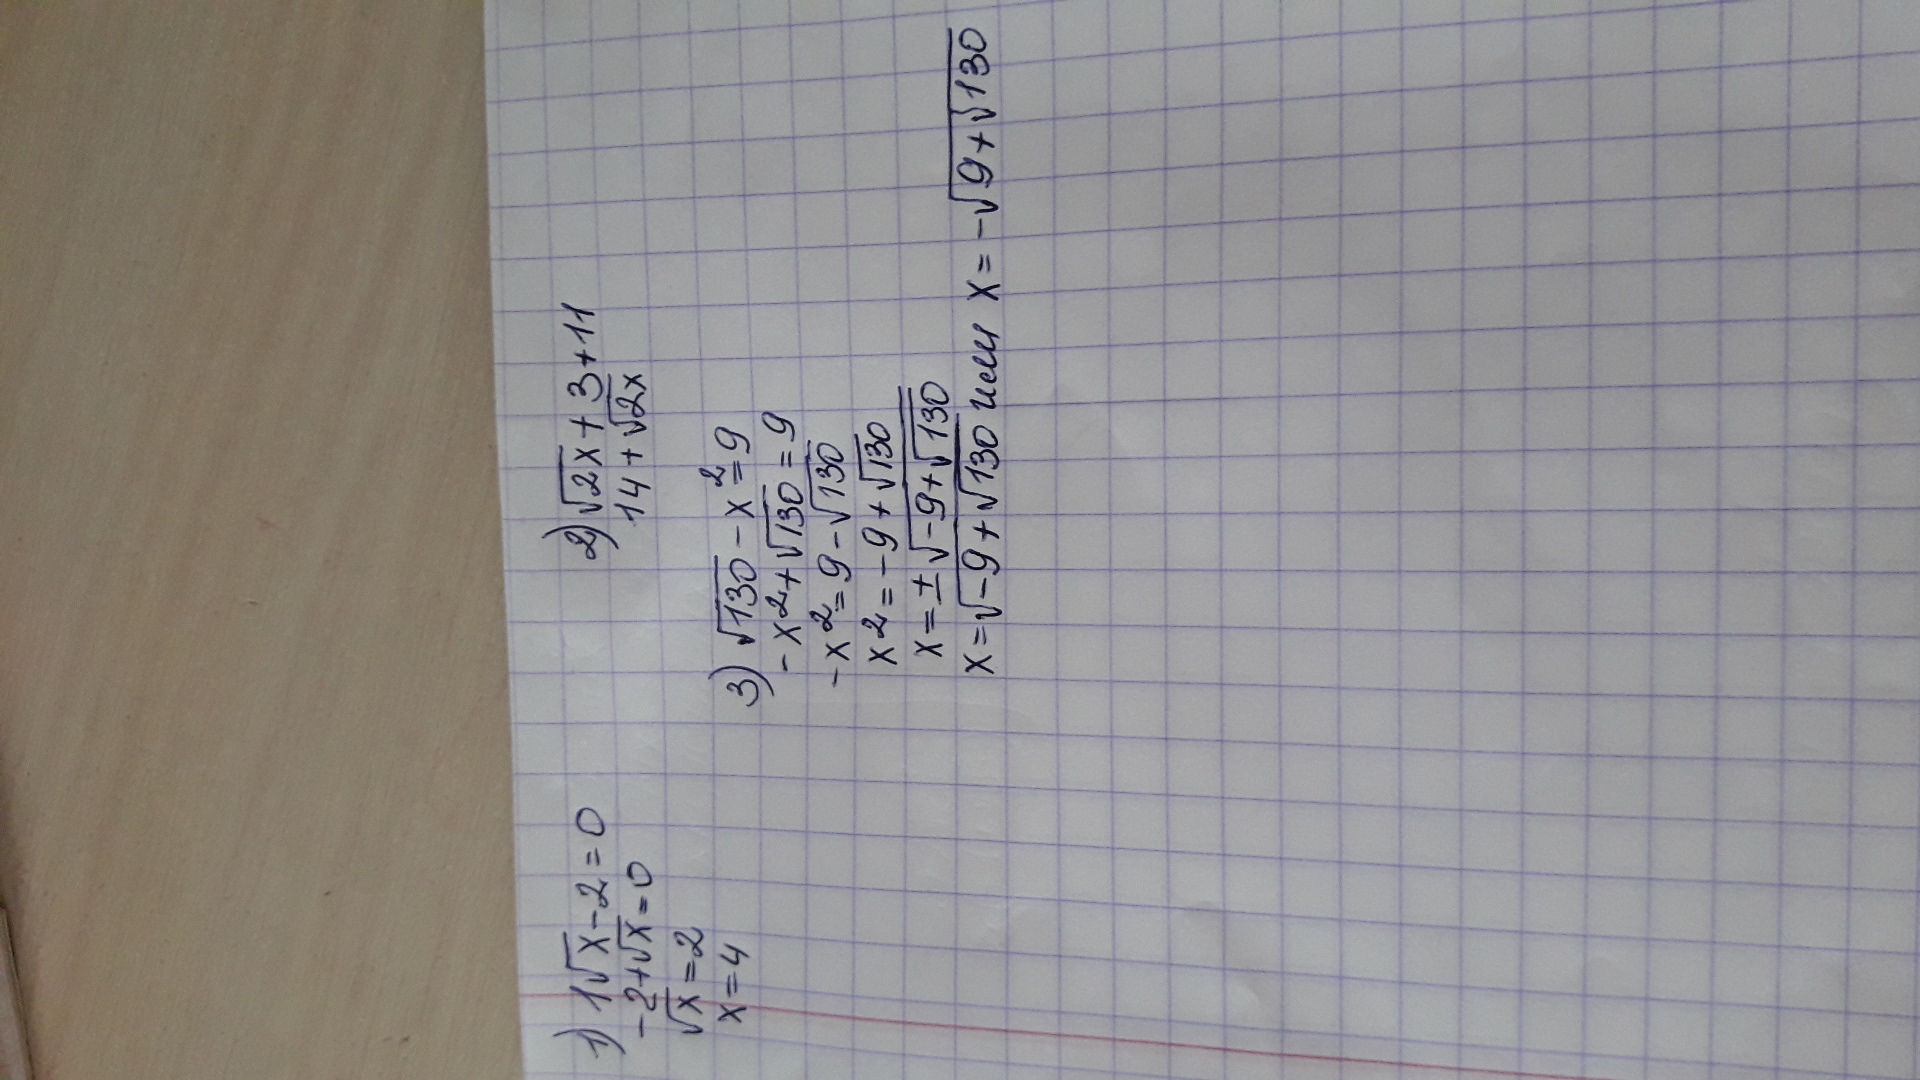 1) 1√x-2=0
-2+√x=0
√x=2
x=4
2) √2x+3+11
14+√2x
3) √130-x²=9
-x²+√130=9
-x²=9-√130
x²=-9+√130
x=±√-9+√130
x=√-9+√130 или x=-√9+√130